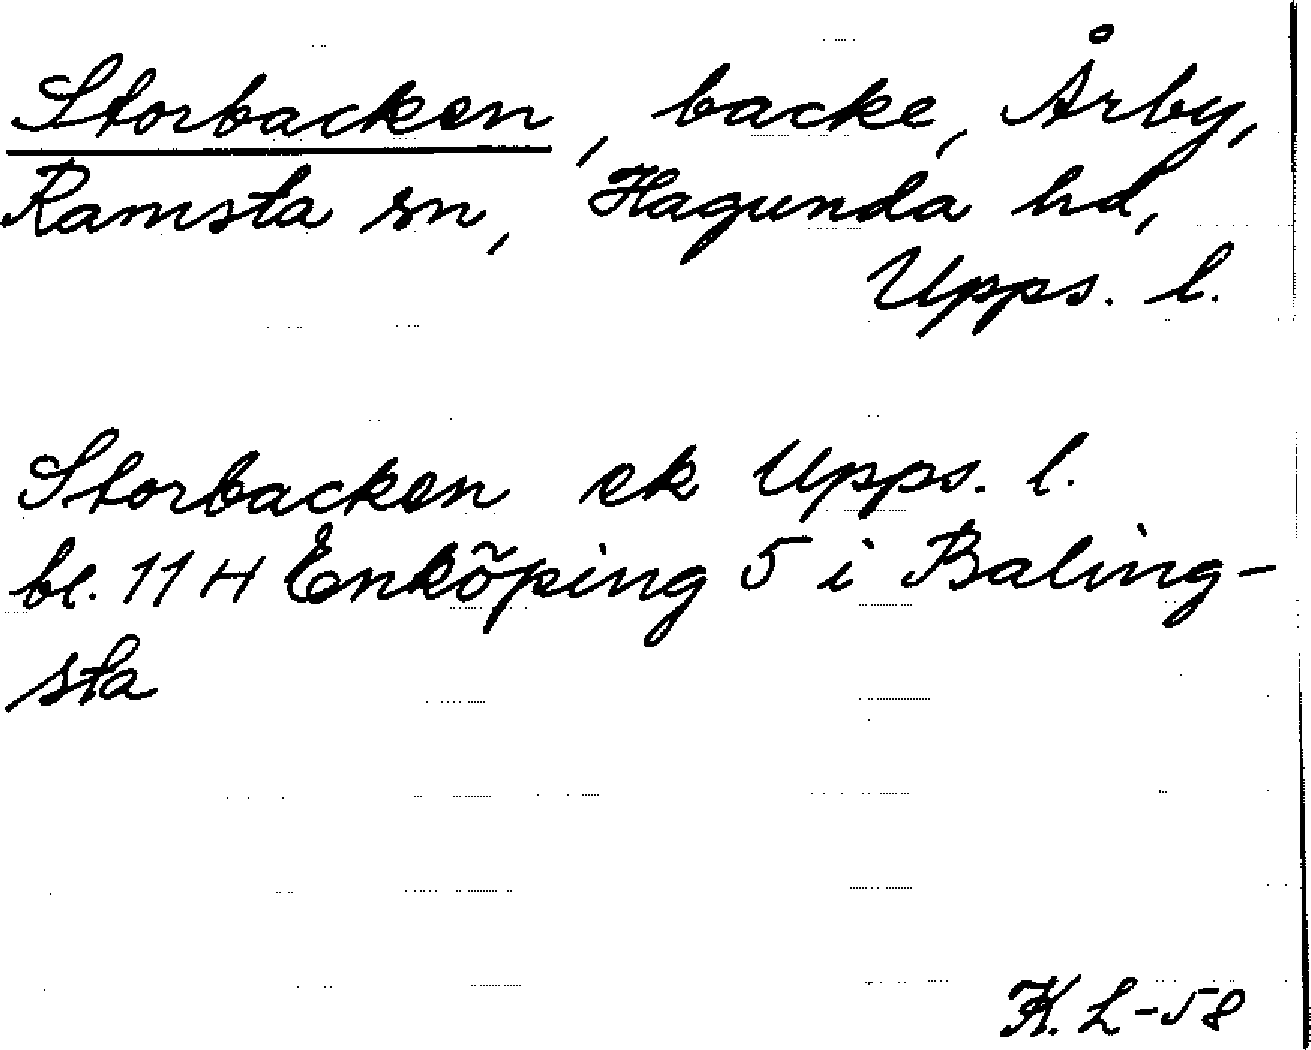 Storbacken, backe, Årby,
Ramsta sn, Hagunda hd,
Upps. l.
Storbacken ek Upps. l.
bl. 11 H Enköping 5 i Baling-
sta
K. L-58